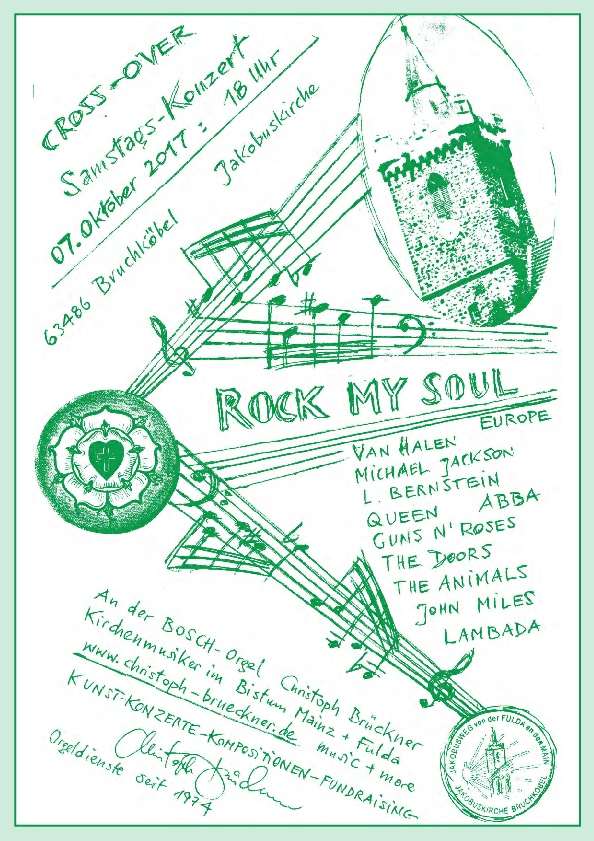 CROSS-OVER
Samstags-Konzert
07. Oktober 2017: 18 Uhr
63486 Bruchköbel Jakobuskirche
ROCK MY SOUL
EUROPE
VAN HALEN
MICHAEL JACKSON
L. BERNSTEIN
QUEEN ABBA
GUNS N' ROSES
THE DOORS
THE ANIMALS
JOHN MILES
LAMBADA
An der BOSCH-Orgel Christoph Brückner
Kirchenmusiker im Bistum Mainz + Fulda
www.christoph-brueckner.de music + more
KUNST-KONZERTE-KOMPOSITIONEN-FUNDRAISING
Christoph Brückner
Orgeldienste seit 1974
JAKOBUSWEG von der FULDA an den MAIN
JAKOBUSKIRCHE BRUCHKÖBEL